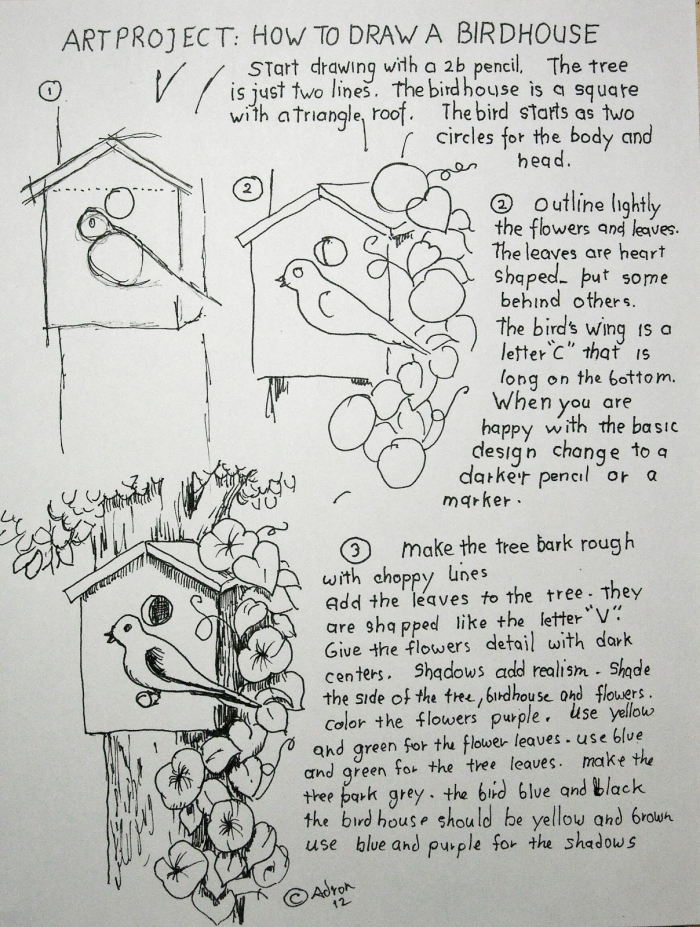 ART PROJECT: HOW TO DRAW A BIRDHOUSE
①
Start drawing with a 2b pencil. The tree
is just two lines. The birdhouse is a square
with a triangle roof. The bird starts as two
circles for the body and
head.
②
② Outline lightly
the flowers and leaves.
The leaves are heart
shaped_ but some
behind others.
The bird's wing is a
letter "C" that is
long on the bottom.
When you are
happy with the basic
design change to a
darker pencil or a
marker.
③ make the tree bark rough
with choppy lines
add the leaves to the tree. They
are shapped like the letter "V".
Give the flowers detail with dark
centers. Shadows add realism. Shade
the side of the tree, birdhouse and flowers.
color the flowers purple. Use yellow
and green for the flower leaves. use blue
and green for the tree leaves. make the
tree bark grey. the bird blue and black
the birdhouse should be yellow and brown
use blue and purple for the shadows
© Adron
12